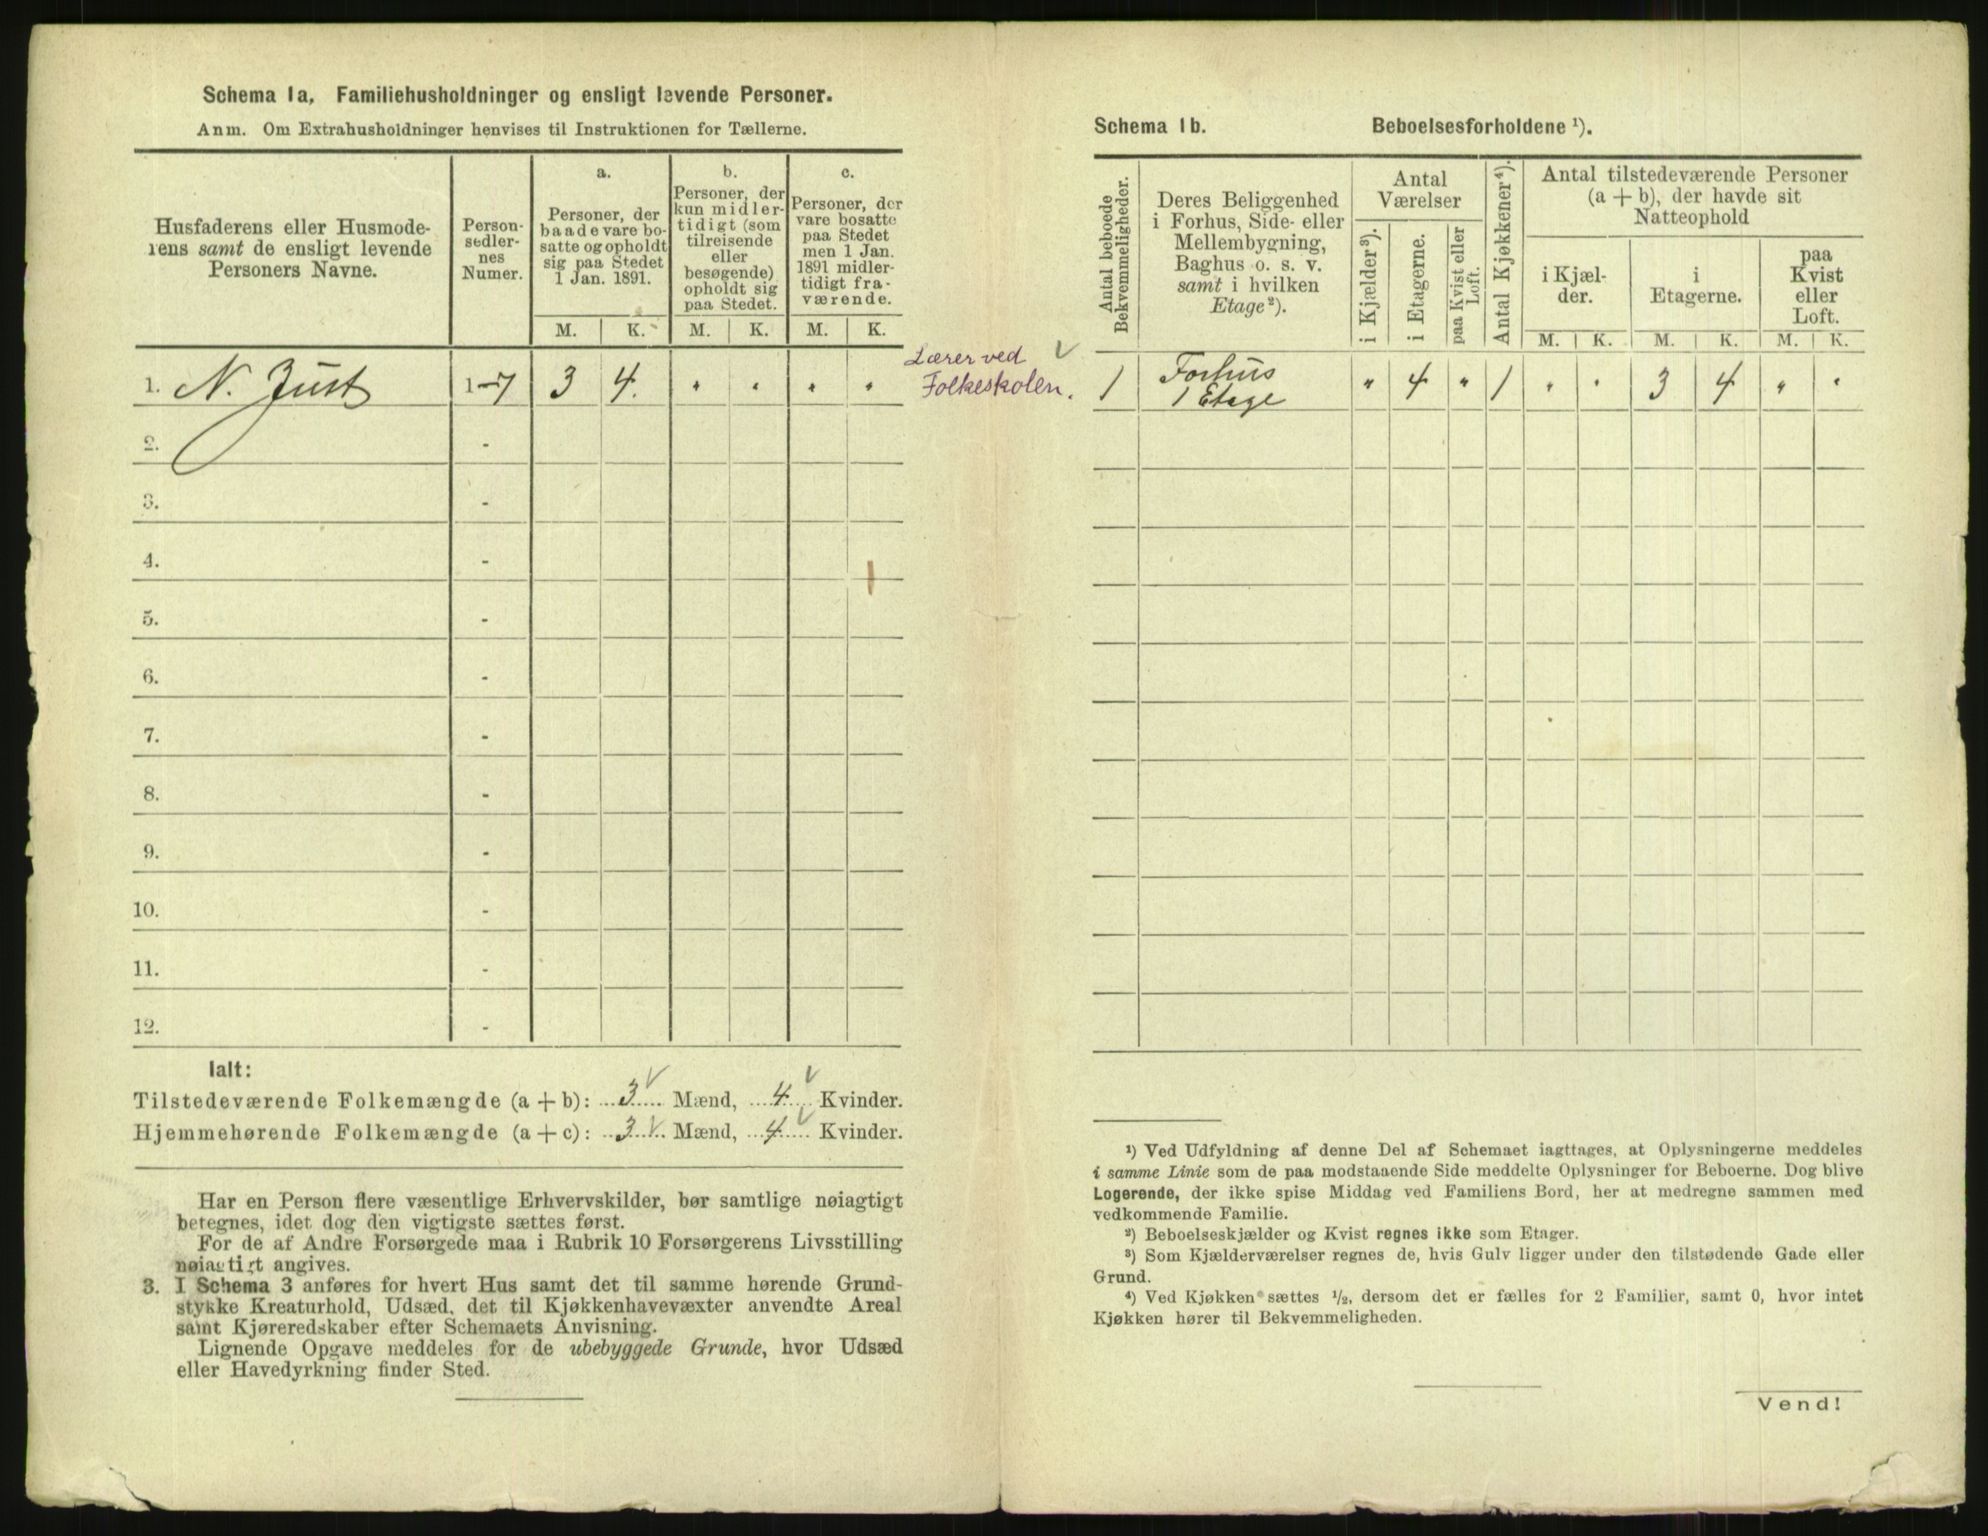 Schema 1a, Familiehusholdninger og ensligt levende Personer.
Anm. Om Extrahusholdninger henvises til Instruktionen for Tællerne.
Husfaderens eller Husmode-
rens samt de ensligt levende
Personers Navne.
Person-
sedler-
nes
Numer.
a.
Personer, der
baade vare bo-
satte og opholdt
sig paa Stedet
1 Jan. 1891.
b.
Personer, der
kun midler-
tidigt (som
tilreisende
eller
besøgende)
opholdt sig
paa Stedet.
c.
Personer, der
vare bosatte
paa Stedet
men 1 Jan.
1891 midler-
tidigt fra-
værende.
M. K. M. K. M. K.
1. N. Just 1-7 3 4. " " " "
Lærer ved
Folkeskolen.
2. -
3. -
4. -
5. -
6. -
7. -
8. -
9. -
10. -
11. -
12. -
Ialt:
Tilstedeværende Folkemængde (a + b): 3 Mænd, 4 Kvinder.
Hjemmehørende Folkemængde (a + c): 3 Mænd, 4 Kvinder.
Har en Person flere væsentlige Erhvervskilder, bør samtlige nøiagtigt
betegnes, idet dog den vigtigste sættes først.
For de af Andre Forsørgede maa i Rubrik 10 Forsørgerens Livsstilling
nøiagtigt angives.
3. I Schema 3 anføres for hvert Hus samt det til samme hørende Grund-
stykke Kreaturhold, Udsæd, det til Kjøkkenhavevæxter anvendte Areal
samt Kjøreredskaber efter Schemaets Anvisning.
Lignende Opgave meddeles for de ubebyggede Grunde, hvor Udsæd
eller Havedyrkning finder Sted.
Schema 1b. Beboelsesforholdene ¹).
Antal beboede
Bekvemmeligheder.
Deres Beliggenhed
i Forhus, Side- eller
Mellembygning,
Baghus o. s. v.
samt i hvilken
Etage²).
Antal
Værelser
i Kjælder³).
i Etagerne.
paa Kvist eller
Loft.
Antal Kjøkkener⁴).
Antal tilstedeværende Personer
(a + b), der havde sit
Natteophold
i Kjæl-
der.
i
Etagerne.
paa
Kvist
eller
Loft.
M. K. M. K. M. K.
1 Forhus
1 Etage " 4 " 1 " " 3 4 " "
¹) Ved Udfyldning af denne Del af Schemaet iagttages, at Oplysningerne meddeles
i samme Linie som de paa modstaaende Side meddelte Oplysninger for Beboerne. Dog blive
Logerende, der ikke spise Middag ved Familiens Bord, her at medregne sammen med
vedkommende Familie.
²) Beboelseskjælder og Kvist regnes ikke som Etager.
³) Som Kjælderværelser regnes de, hvis Gulv ligger under den tilstødende Gade eller
Grund.
⁴) Ved Kjøkken sættes ½, dersom det er fælles for 2 Familier, samt 0, hvor intet
Kjøkken hører til Bekvemmeligheden.
Vend!